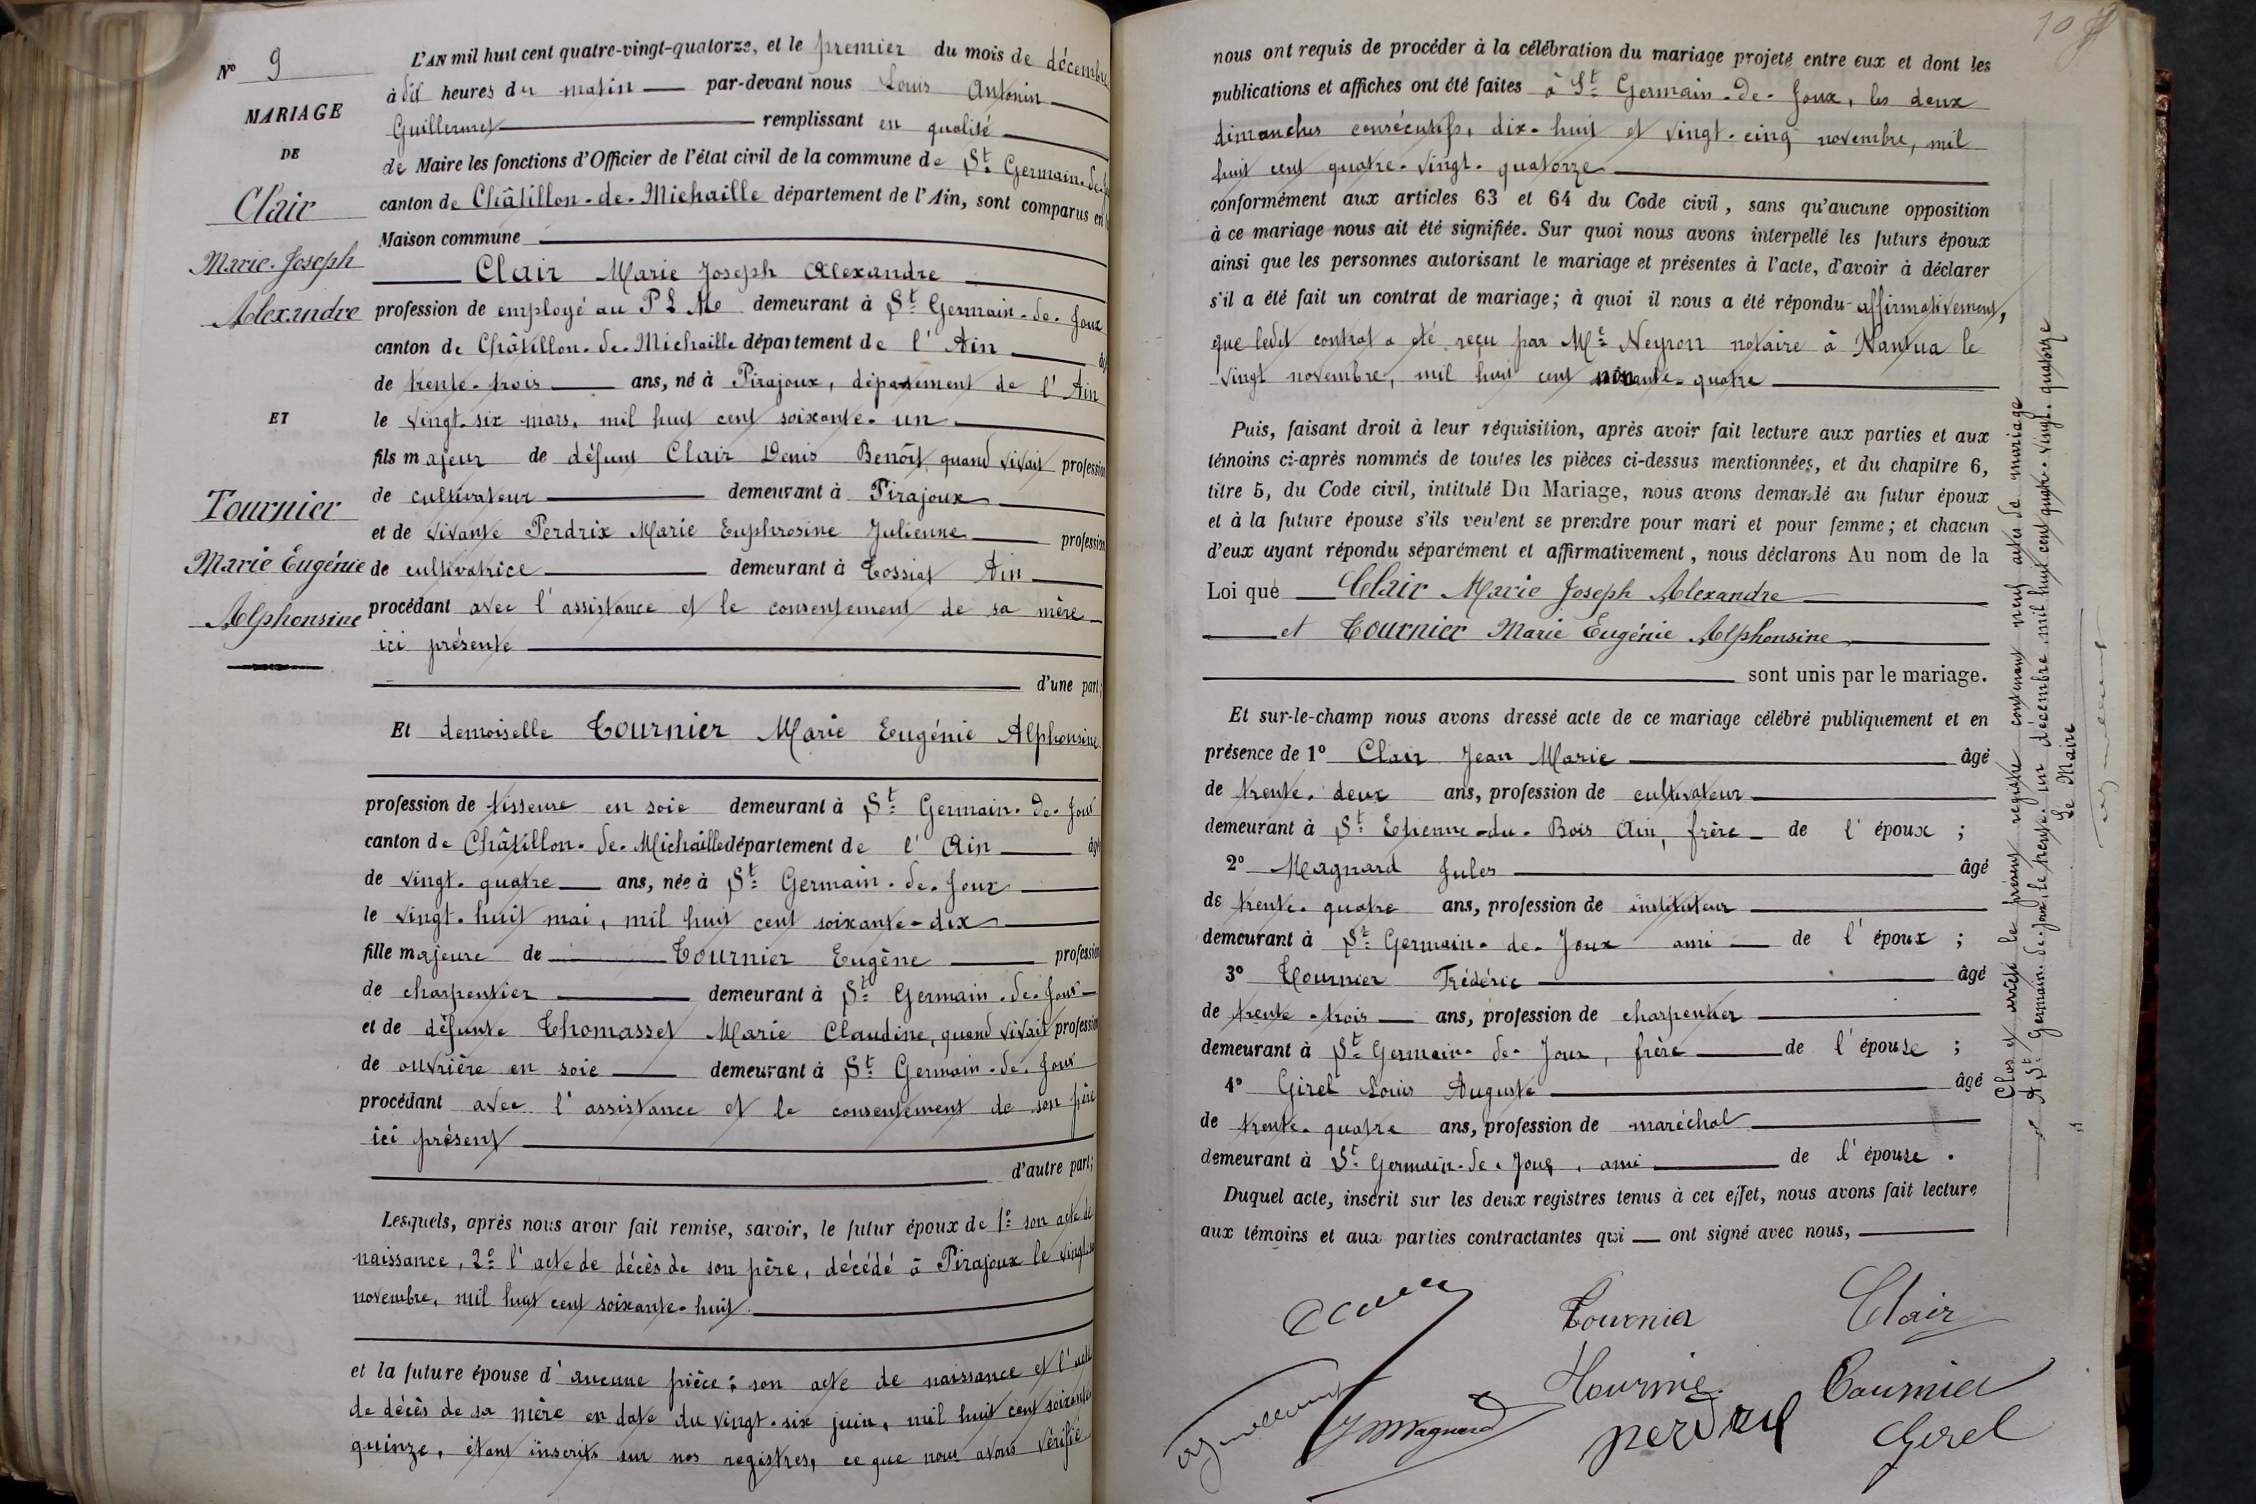 N° 9
MARIAGE
DE
Clair
Marie-Joseph
Alexandre
ET
Tournier
Marie Eugénie
Alphonsine
L'AN mil huit cent quatre-vingt-quatorze, et le premier du mois de décembre
à dix heures du matin par-devant nous Louis Antonin
Guillermet remplissant en qualité
de Maire les fonctions d'Officier de l'état civil de la commune de St Germain-de-
canton de Châtillon-de-Michaille département de l'Ain, sont comparus en
Maison commune
Clair Marie Joseph Alexandre
profession de employé au P L M demeurant à St Germain-de-Joux
canton de Châtillon-de-Michaille département de l'Ain âgé
de trente-trois ans, né à Pirajoux, département de l'Ain
le vingt-six mars, mil huit cent soixante-un
fils majeur de défunt Clair Denis Benoît, quand vivait profession
de cultivateur demeurant à Pirajoux
et de vivante Perdrix Marie Euphrosine Julienne profession
de cultivatrice demeurant à Tossiat Ain
procédant avec l'assistance et le consentement de sa mère
ici présente
d'une part;
Et demoiselle Tournier Marie Eugénie Alphonsine
profession de tisseuse en soie demeurant à St Germain-de-Joux
canton de Châtillon-de-Michaille département de l'Ain âgé
de vingt-quatre ans, née à St Germain-de-Joux
le vingt-huit mai, mil huit cent soixante-dix
fille majeure de Tournier Eugène profession
de charpentier demeurant à St Germain-de-Joux
et de défunte Thomasset Marie Claudine, quand vivait profession
de ouvrière en soie demeurant à St Germain-de-Joux
procédant avec l'assistance et le consentement de son père
ici présent
d'autre part;
Lesquels, après nous avoir fait remise, savoir, le futur époux de 1° son acte de
naissance, 2° l'acte de décès de son père, décédé à Pirajoux le
novembre, mil huit cent soixante-huit.
et la future épouse d'aucune pièce; son acte de naissance et l'acte
de décès de sa mère en date du vingt-six juin, mil huit cent soixante
quinze, étant inscrits sur nos registres, ce que nous avons vérifié
nous ont requis de procéder à la célébration du mariage projeté entre eux et dont les
publications et affiches ont été faites à St Germain-de-Joux, les deux
dimanches consécutifs, dix-huit et vingt-cinq novembre, mil
huit cent quatre-vingt-quatorze
conformément aux articles 63 et 64 du Code civil, sans qu'aucune opposition
à ce mariage nous ait été signifiée. Sur quoi nous avons interpellé les futurs époux
ainsi que les personnes autorisant le mariage et présentes à l'acte, d'avoir à déclarer
s'il a été fait un contrat de mariage; à quoi il nous a été répondu affirmativement,
que ledit contrat a été reçu par Me Neyron notaire à Nantua le
vingt novembre, mil huit cent nonante-quatre
Puis, faisant droit à leur réquisition, après avoir fait lecture aux parties et aux
témoins ci-après nommés de toutes les pièces ci-dessus mentionnées, et du chapitre 6,
titre 5, du Code civil, intitulé Du Mariage, nous avons demandé au futur époux
et à la future épouse s'ils veulent se prendre pour mari et pour femme; et chacun
d'eux ayant répondu séparément et affirmativement, nous déclarons Au nom de la
Loi que Clair Marie Joseph Alexandre
et Tournier Marie Eugénie Alphonsine
sont unis par le mariage.
Et sur-le-champ nous avons dressé acte de ce mariage célébré publiquement et en
présence de 1° Clair Jean Marie âgé
de trente-deux ans, profession de cultivateur
demeurant à St Etienne-du-Bois Ain, frère de l'époux;
2° Magnard Jules âgé
de trente-quatre ans, profession de instituteur
demeurant à St Germain-de-Joux ami de l'époux;
3° Tournier Frédéric âgé
de trente-trois ans, profession de charpentier
demeurant à St Germain-de-Joux, frère de l'épouse;
4° Girel Louis Auguste âgé
de trente-quatre ans, profession de maréchal
demeurant à St Germain-de-Joux, ami de l'épouse.
Duquel acte, inscrit sur les deux registres tenus à cet effet, nous avons fait lecture
aux témoins et aux parties contractantes qui ont signé avec nous,
Tournier Clair
Tournier
JMagnard perdrix Girel
Clos et arrêté le présent registre contenant neuf actes de mariage
A St Germain-de-Joux, le trente-un décembre mil huit cent quatre-vingt-quatorze
Le Maire